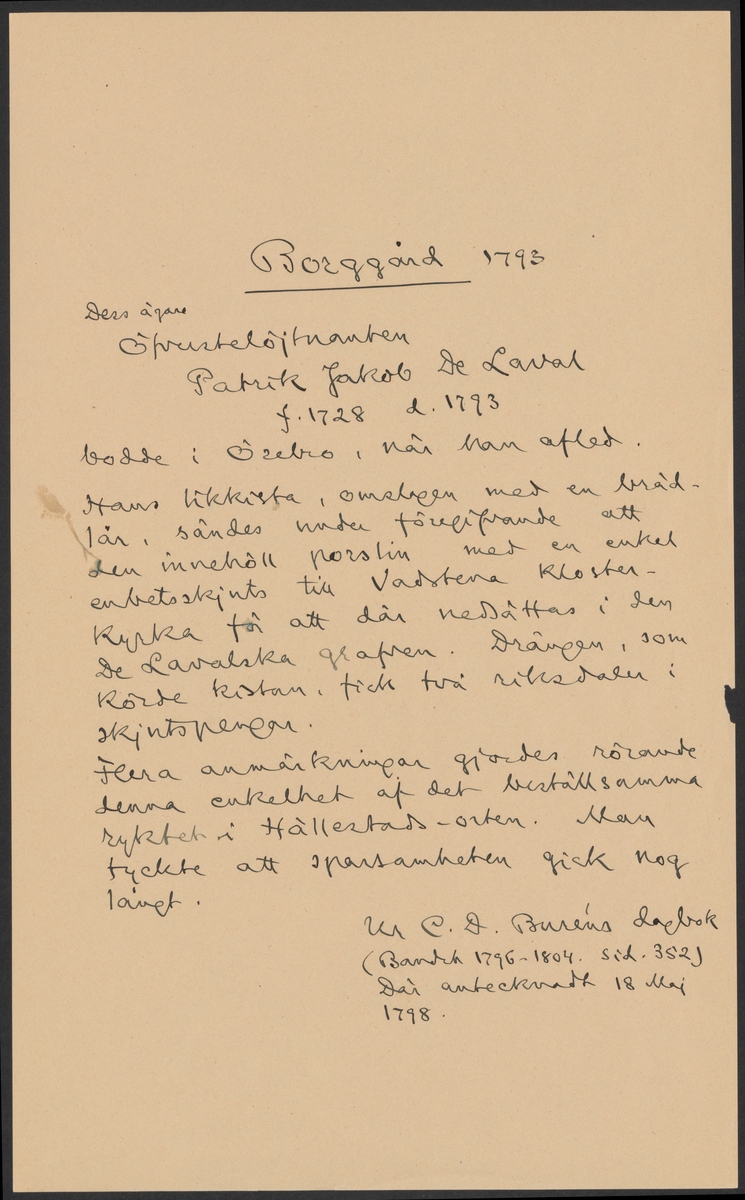 Borggård 1793
Dess ägare
Öfverstelöjtnanten
Patrik Jakob De Laval
f. 1728 d. 1793
bodde i Örebro, när han afled.
Hans likkista, omslagen med en bräd-
lår, sändes under föregifvande att
den innehöll porslin med en enkel
enbetsskjuts till Vadstena Kloster-
kyrka för att där nedsättas i den
De Lavalska grafven. Drängen, som
körde kistan, fick två riksdaler i
skjutspengar.
Flera anmärkningar gjordes rörande
denna enkelhet af det beställsamma
ryktet i Hällestads-orten. Man
tyckte att sparsamheten gick nog
långt.
Ur C. D. Buréns dagbok
(Bandet 1796-1804. sid. 352)
Där antecknadt 18 Maj
1798.